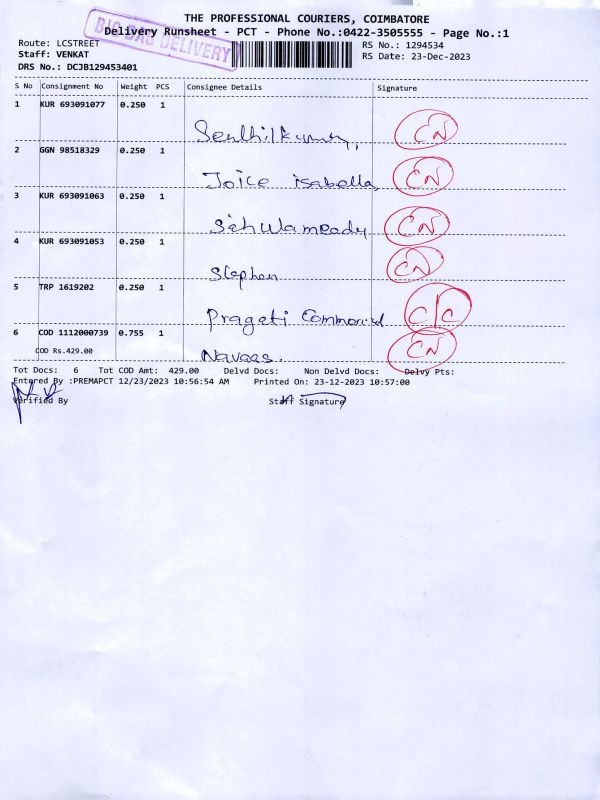 THE PROFESSIONAL COURIERS, COIMBATORE
Delivery Runsheet - PCT - Phone No.:0422-3505555 - Page No.:1
BIG BAG DELIVERY
Route: LCSTREET
RS No.: 1294534
Staff: VENKAT
RS Date: 23-Dec-2023
DRS No.: DCJB129453401
S No Consignment No Weight PCS Consignee Details Signature
1 KUR 693091077 0.250 1
Senthilkumar, CN
2 GGN 98518329 0.250 1
Joice isabella, CN
3 KUR 693091063 0.250 1
CN
4 KUR 693091053 0.250 1
Stephen CN
5 TRP 1619202 0.250 1
Pragati Commercial C/C
6 COD 1112000739 0.755 1
COD Rs.429.00 Navaas. CN
Tot Docs: 6 Tot COD Amt: 429.00 Delvd Docs: Non Delvd Docs: Delvy Pts:
Entered By :PREMAPCT 12/23/2023 10:56:54 AM Printed On: 23-12-2023 10:57:00
Verified By Staff Signature